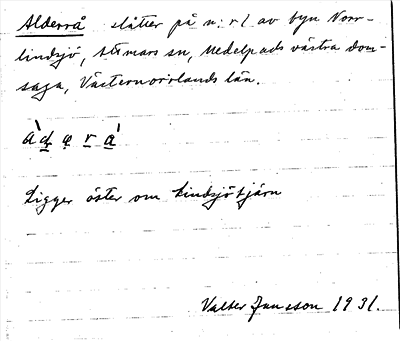 Alderrå slåtter på n:r 1 av byn Norr-
lindsjö, Attmars sn, Medelpads västra dom-
saga, Västernorrlands län.
àdęrá
Ligger öster om Lindsjötjärn
Valter Jansson 1931.